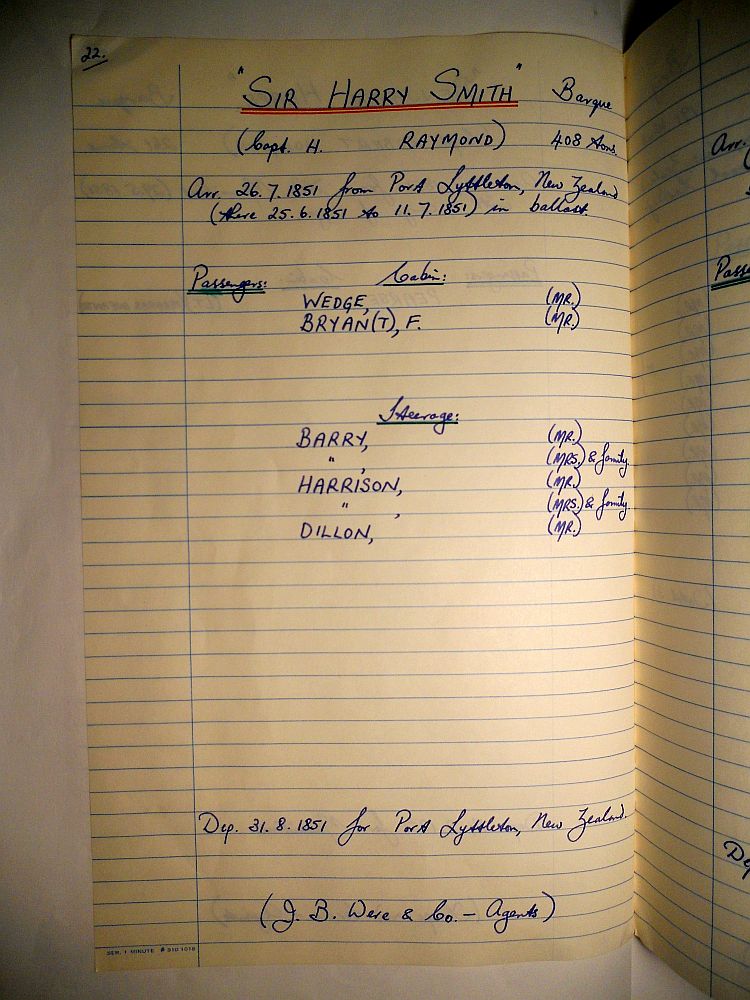 22.
"SIR HARRY SMITH" Barque
(Capt. H. RAYMOND) 408 tons.
Arr. 26.7.1851 from Port Lyttleton, New Zealand
(there 25.6.1851 to 11.7.1851) in ballast.
Passengers: Cabin:
WEDGE, (MR.)
BRYAN(T), F. (MR.)
Steerage:
BARRY, (MR.)
" , (MRS.) & family.
HARRISON, (MR.)
" , (MRS.) & family.
DILLON, (MR.)
Dep. 31.8.1851 for Port Lyttleton, New Zealand.
(J. B. Were & Co. — Agents)
Arr.
(
Passe
De